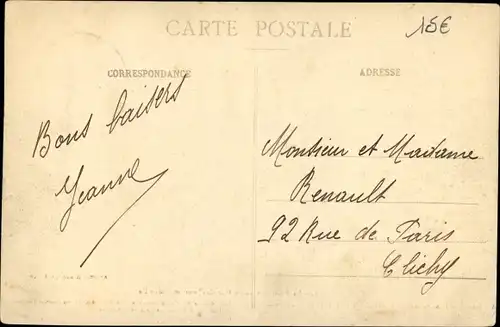 CARTE POSTALE
15€
CORRESPONDANCE
ADRESSE
Bons baisers
Jeanne
Monsieur et Madame
Renault
92 Rue de Paris
Clichy